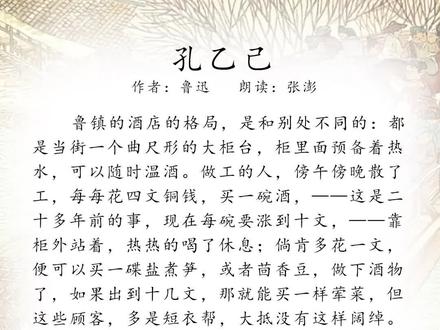 孔乙己
作者：鲁迅 朗读：张澎
鲁镇的酒店的格局，是和别处不同的：都
是当街一个曲尺形的大柜台，柜里面预备着热
水，可以随时温酒。做工的人，傍午傍晚散了
工，每每花四文铜钱，买一碗酒，——这是二
十多年前的事，现在每碗要涨到十文，——靠
柜外站着，热热的喝了休息；倘肯多花一文，
便可以买一碟盐煮笋，或者茴香豆，做下酒物
了，如果出到十几文，那就能买一样荤菜，但
这些顾客，多是短衣帮，大抵没有这样阔绰。